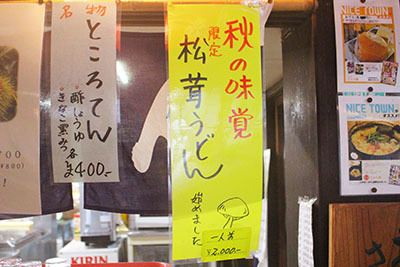 名物
ところてん
・酢しょうゆ
・きなこ黒みつ
各400.-
秋の味覚
限定
松茸うどん
始めました
一人前
¥2,000.-
NICE TOWN
NICE TOWN
KIRIN